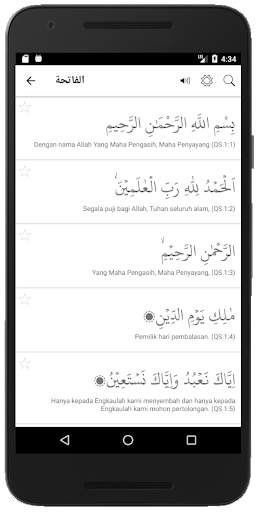 4:34
الفاتحة
بِسْمِ اللَّهِ الرَّحْمَٰنِ الرَّحِيمِ
Dengan nama Allah Yang Maha Pengasih, Maha Penyayang (QS.1:1)
اَلْحَمْدُ لِلّٰهِ رَبِّ الْعٰلَمِيْنَۙ
Segala puji bagi Allah, Tuhan seluruh alam, (QS.1:2)
الرَّحْمٰنِ الرَّحِيْمِۙ
Yang Maha Pengasih, Maha Penyayang, (QS.1:3)
مٰلِكِ يَوْمِ الدِّيْنِۗ
Pemilik hari pembalasan. (QS.1:4)
اِيَّاكَ نَعْبُدُ وَاِيَّاكَ نَسْتَعِيْنُۗ
Hanya kepada Engkaulah kami menyembah dan hanya kepada
Engkaulah kami mohon pertolongan. (QS.1:5)